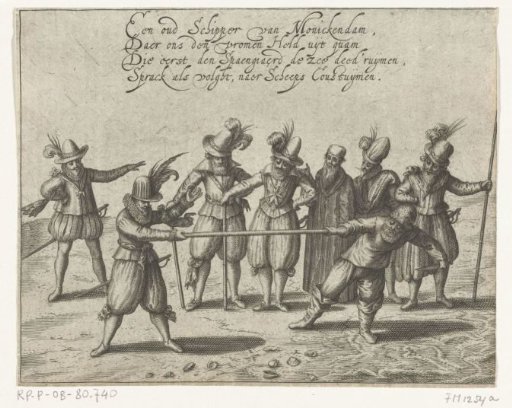 Een oud Schipper van Monickendam,
Daer ons den vromen Held uyt quam
Die eerst den Spaengiaerd de zee deed ruymen,
Sprack als volght, naer Scheeps Coustuymen.
RP-P-OB-80.740
711125ya